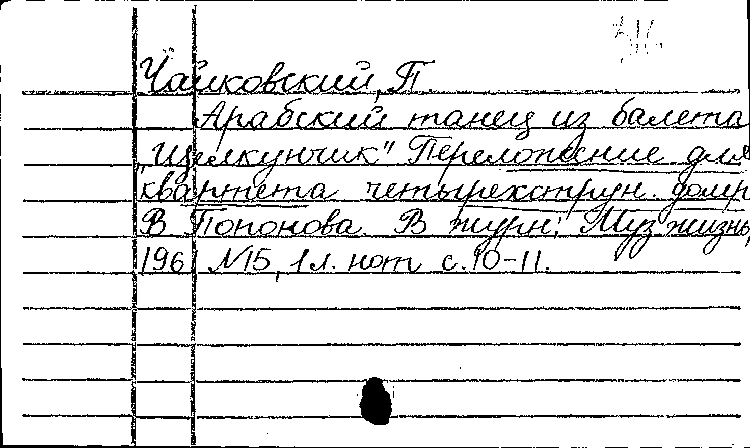 Чайковский, П.
Арабский танец из балета
„Щелкунчик" Переложение для
квартета четырехструн. домр
В Попонова. В журн: Муз жизнь,
1961 №15, 1 л. нот с. 10-11.